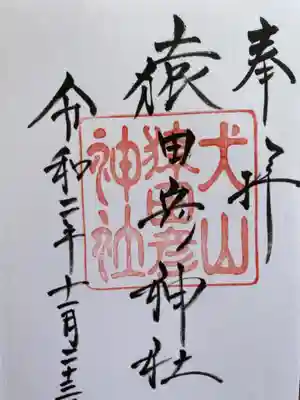 奉拝
猿田彦神社
令和二年十一月二十三
犬山
猿田彦
神社